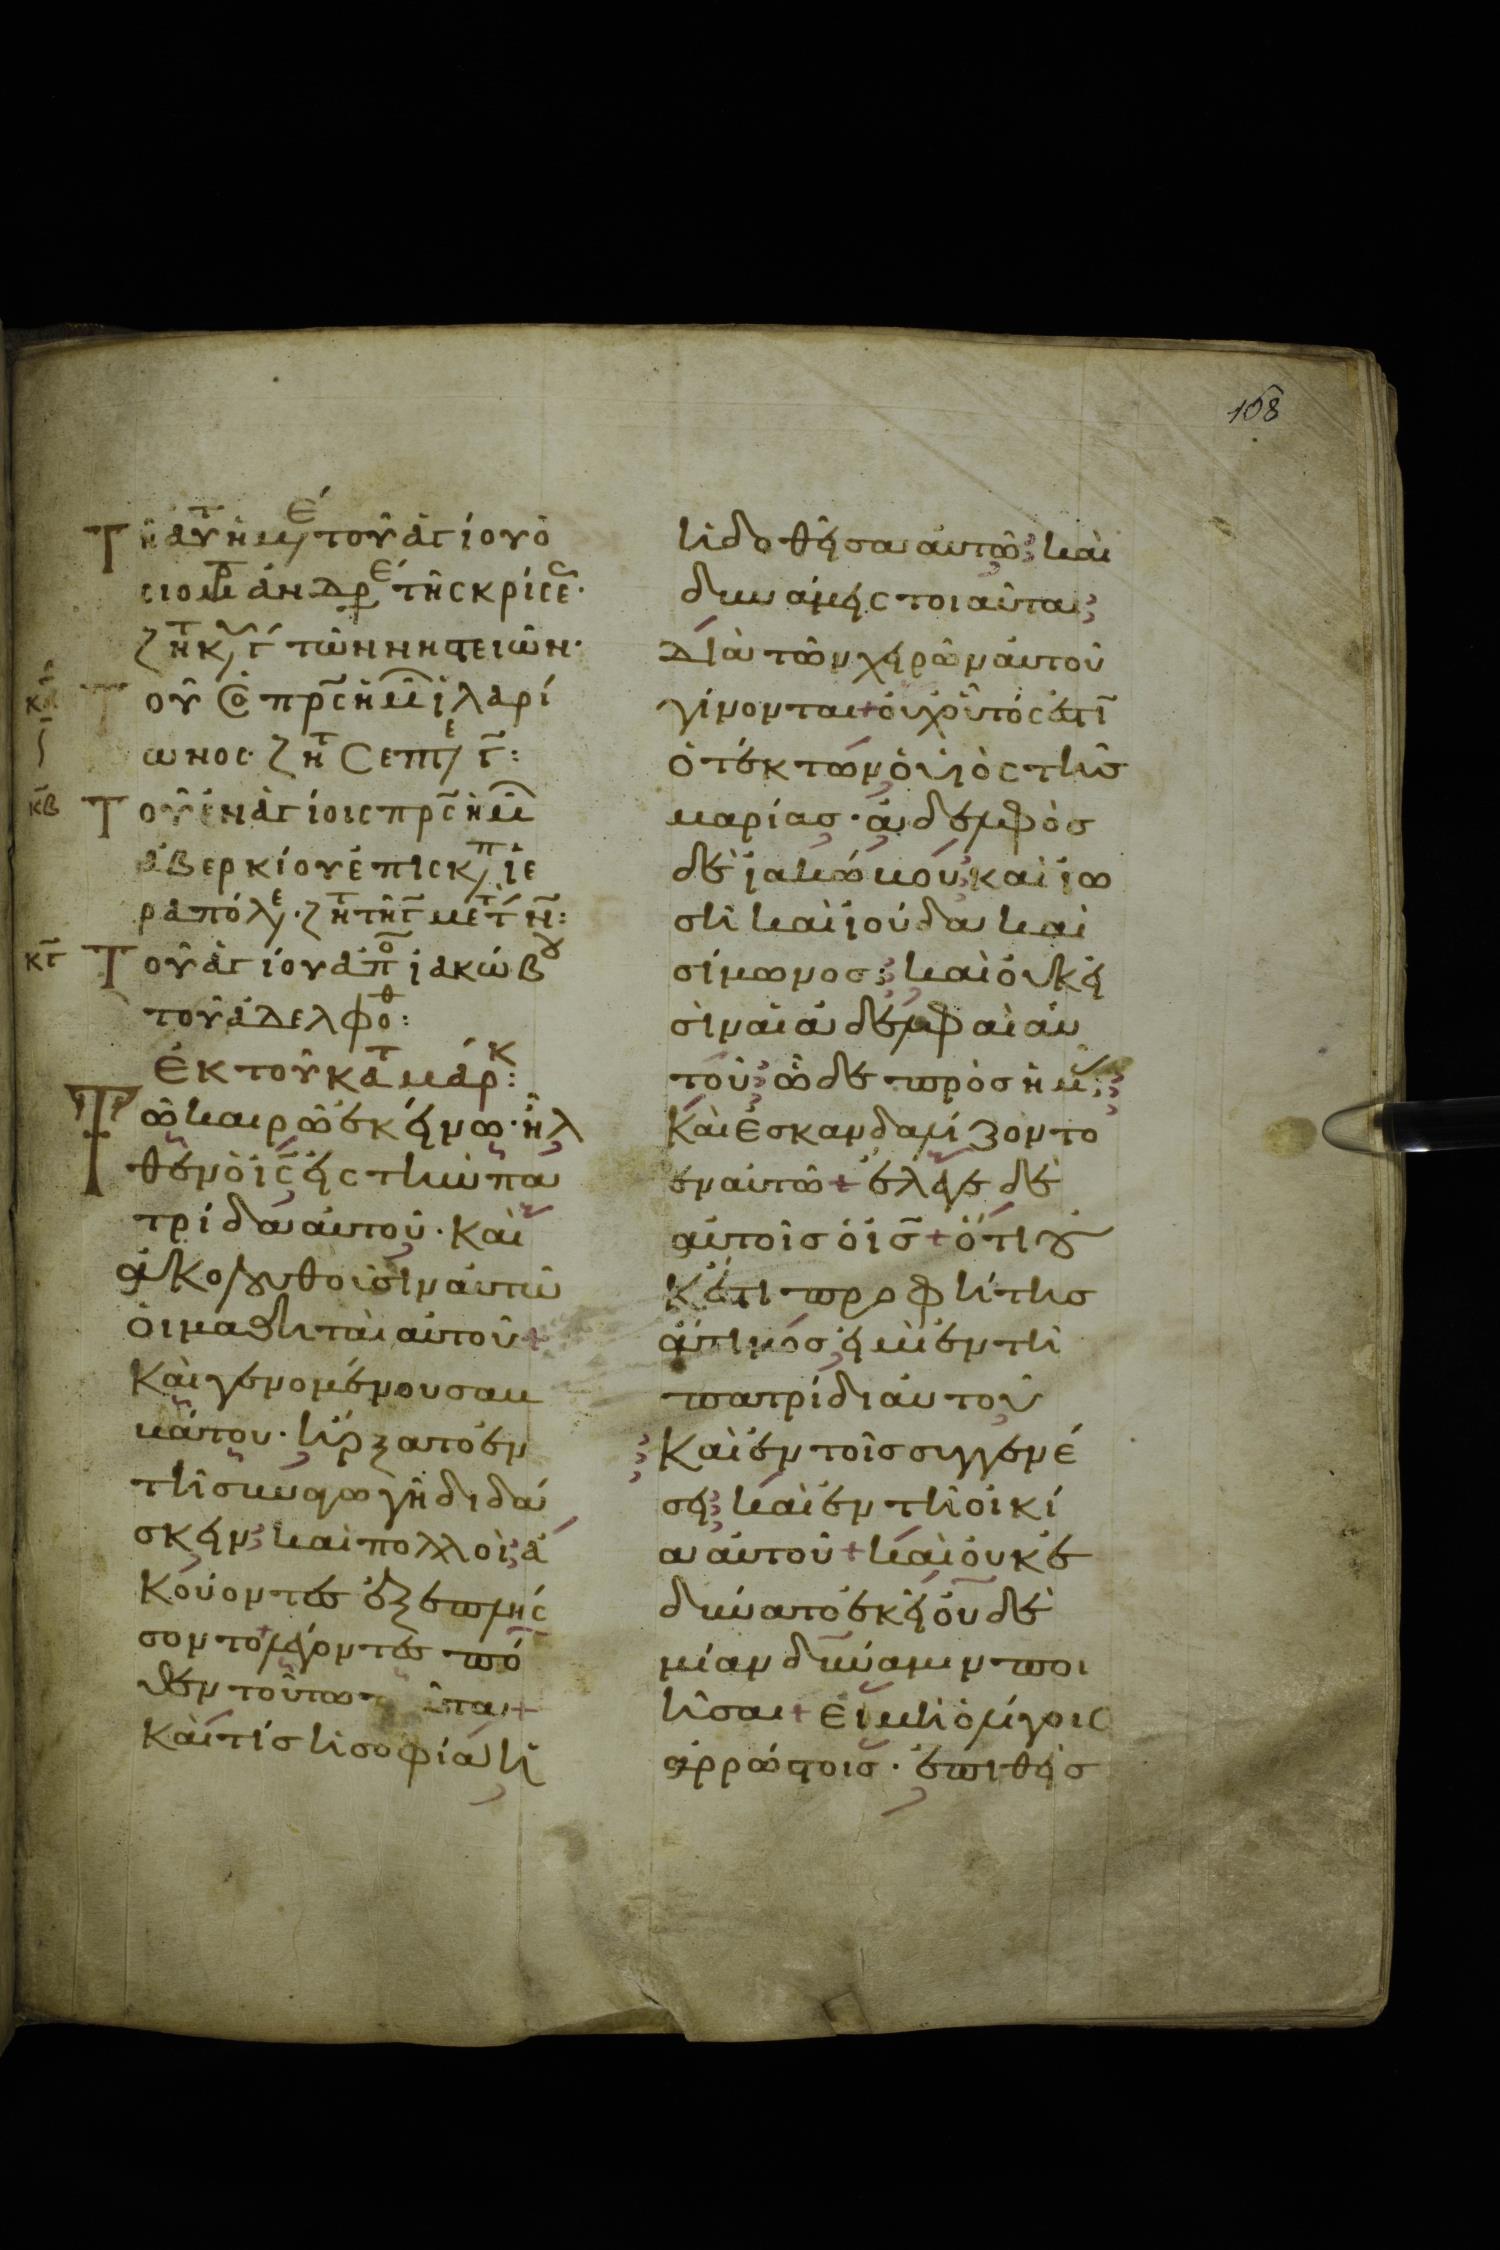 158
Τῆ αὐτ ἡμε, τοῦ ἁγίου ὁ
σιομ ἀνδρέ τῆς κρίσε·
ζητ κυ, γ τῶν νηστειῶν·
κα Τοῦ ὁ πρς ἡμ ἱλαρί
ωνος· ζητ Σεπτε, γ:
κβ Τοῦ ἐν ἁγίοις πρς ἡμ
ἀβερκίου ἐπισκπ, ἱε
ραπόλε, · ζητ τῆ γ μετ τ ν:
κγ Τοῦ ἁγίου ἀπο ἰακώβου
τοῦ ἀδελφοθ:
ἐκ τοῦ κατ μάρκ:
Τῶ καιρῶ ἐκείνω· ἦλ
θεν ὁ ις εἰς τὴν πα
τρίδα αὐτοῦ· Καὶ
ἀκολουθοῦσιν αὐτῶ
οἱ μαθηταὶ αὐτοῦ +
Καὶ γενομένου σαβ
βάτου· ἤρξατο ἐν
τῆ συναγωγῆ διδά
σκειν· καὶ πολλοὶ ἀ
κούοντες ἐξεπλήσ
σοντο λέγοντες πό
θεν τούτω ταῦτα +
Καὶ τίς ἡ σοφία ἡ
ἡ δοθεῖσα αὐτῶ· καὶ
δυνάμεις τοιαῦται
Διὰ τῶν χειρῶν αὐτοῦ
γίνονται + οὐχ οὗτός ἐστι
ὁ τέκτων ὁ υἱὸς τῆς
μαρίας· ἀδελφὸς
δὲ ἰακώβου καὶ ἰω
σῆ καὶ ἰούδα καὶ
σίμωνος; καὶ οὐκ εἰ
σὶν αἱ ἀδελφαὶ αὐ
τοῦ ὧδε πρὸς ἡμᾶς;
Καὶ ἐσκανδαλίζοντο
ἐν αὐτῶ + ἔλεγε δὲ
αὐτοῖς ὁ ις + ὅτι οὐ
κ ἔστι προφήτης
ἄτιμος εἰ μὴ ἐν τῆ
πατρίδι αὐτοῦ
Καὶ ἐν τοῖς συγγενέ
σι· καὶ ἐν τῆ οἰκί
α αὐτοῦ + Καὶ οὐκ ἐ
δύνατο ἐκεῖ οὐδε
μίαν δύναμιν ποι
ῆσαι + Εἰ μὴ ὀλίγοις
ἀρρώστοις· ἐπιθεὶς